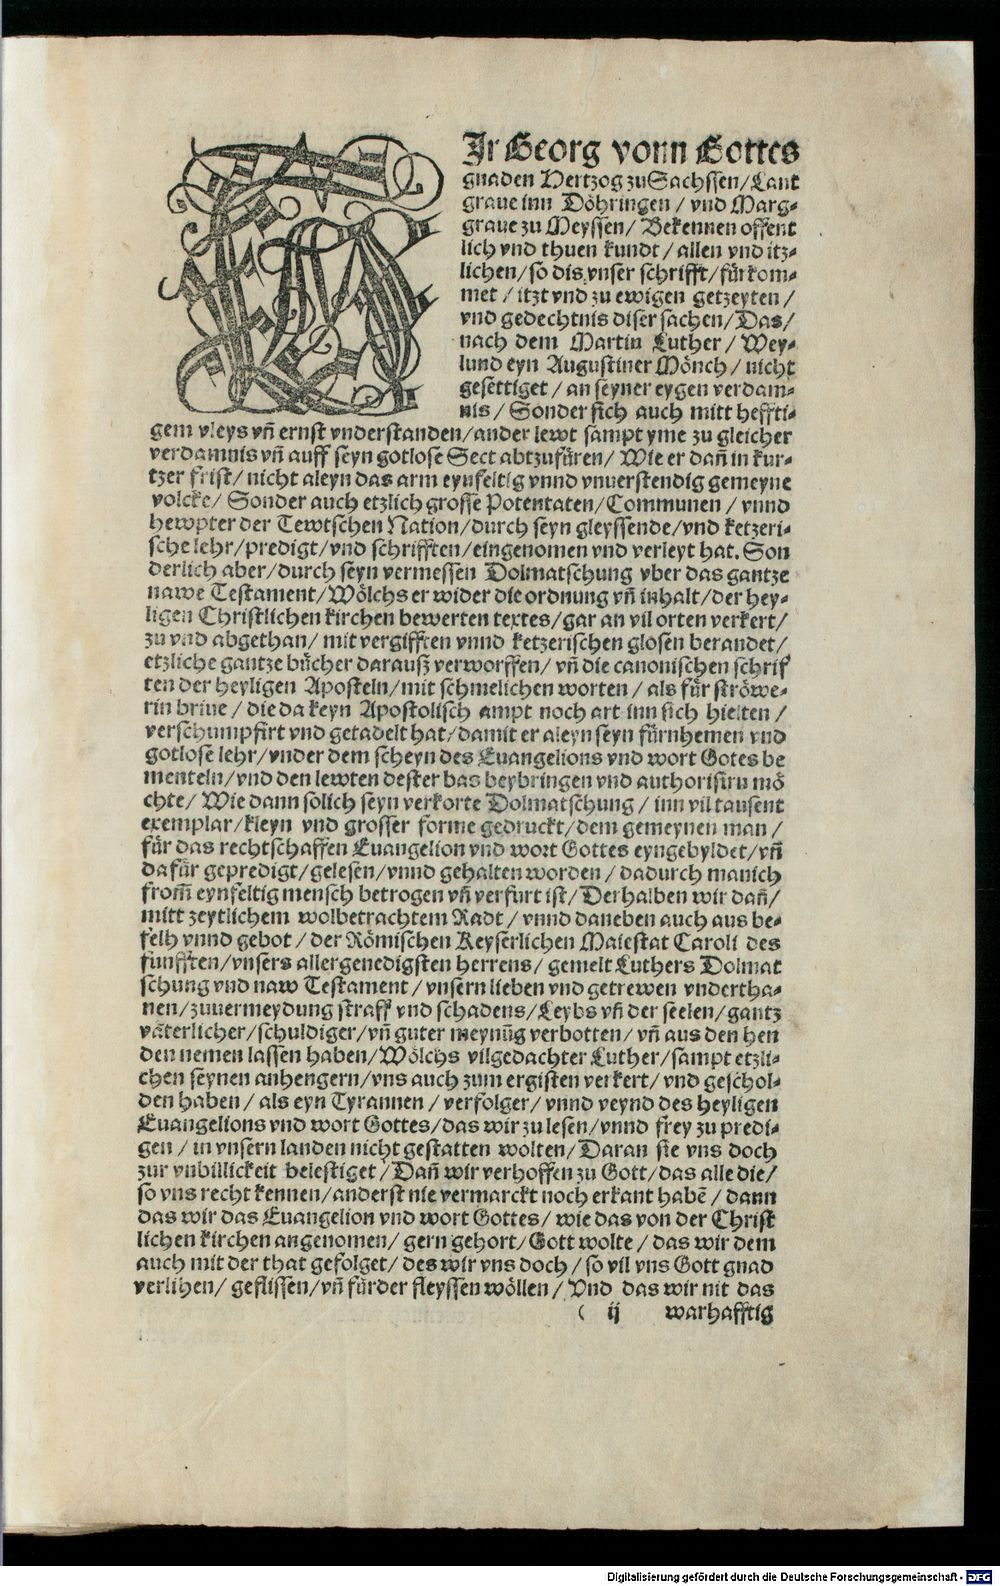 WJr Georg vonn Gottes
gnaden Hertzog zu Sachssen/ Lant
graue inn Döhringen / vnd Marg-
graue zu Meyssen/ Bekennen offent
lich vnd thuen kundt / allen vnd itz-
lichen/ so dis vnser schrifft/ fürkom-
met / itzt vnd zu ewigen getzeyten /
vnd gedechtnis diser sachen/ Das/
nach dem Martin Luther / Wey-
lund eyn Augustiner Mönch / nicht
gesettiget / an seyner eygen verdam-
nis / Sonder sich auch mitt heffti-
gem vleys vñ ernst vnderstanden/ ander lewt sampt yme zu gleicher
verdamnis vñ auff seyn gotlose Sect abtzufüren/ Wie er dañ in kur-
tzer frist/ nicht aleyn das arm eynfeltig vnnd vnuerstendig gemeyne
volcke/ Sonder auch etzlich grosse Potentaten/ Communen / vnnd
hewpter der Tewtschen Nation/ durch seyn gleyssende/ vnd ketzeri-
sche lehr/ predigt/ vnd schrifften/ eingenomen vnd verleyt hat. Son
derlich aber/ durch seyn vermessen Dolmatschung vber das gantze
nawe Testament/ Wölchs er wider die ordnung vñ inhalt/ der hey-
ligen Christlichen kirchen bewerten textes/ gar an vil orten verkert/
zu vnd abgethan/ mit vergifften vnnd ketzerischen glosen berandet/
etzliche gantze bücher darausz verworffen/ vñ die canonischen schrif
ten der heyligen Aposteln/ mit schmelichen worten / als für ströwe-
rin briue / die da keyn Apostolisch ampt noch art inn sich hielten /
verschumpfirt vnd getadelt hat/ damit er aleyn seyn fürnhemen vnd
gotlose lehr/ vnder dem scheyn des Euangelions vnd wort Gotes be
menteln/ vnd den lewten dester bas beybringen vnd authorisirn mö
chte/ Wie dann solich seyn verkorte Dolmatschung / inn vil tausent
exemplar/ kleyn vnd grosser forme gedruckt/ dem gemeynen man /
für das rechtschaffen Euangelion vnd wort Gottes eyngebyldet/ vñ
dafür gepredigt/ gelesen/ vnnd gehalten worden / dadurch manich
from̃ eynfeltig mensch betrogen vñ verfurt ist/ Derhalben wir dañ/
mitt zeytlichem wolbetrachtem Radt / vnnd daneben auch aus be-
felh vnnd gebot / der Römischen Keyserlichen Maiestat Caroli des
funfften/ vnsers allergenedigsten herrens/ gemelt Luthers Dolmat
schung vnd naw Testament / vnsern lieben vnd getrewen vndertha-
nen/ zuuermeydung straff vnd schadens/ Leybs vñ der seelen/ gantz
väterlicher/ schuldiger/ vñ guter meynũg verbotten/ vñ aus den hen
den nemen lassen haben/ Wölchs vilgedachter Luther/ sampt etzli-
chen seynen anhengern/ vns auch zum ergisten verkert/ vnd geschol-
den haben / als eyn Tyrannen / verfolger/ vnnd veynd des heyligen
Euangelions vnd wort Gottes/ das wir zu lesen/ vnnd frey zu predi-
gen / in vnsern landen nicht gestatten wolten/ Daran sie vns doch
zur vnbillickeit belestiget / Dañ wir verhoffen zu Gott/ das alle die/
so vns recht kennen/ anderst nie vermarckt noch erkant habẽ / dann
das wir das Euangelion vnd wort Gottes/ wie das von der Christ
lichen kirchen angenomen/ gern gehort/ Gott wolte / das wir dem
auch mit der that gefolget/ des wir vns doch/ so vil vns Gott gnad
verlihen/ geflissen/ vñ fürder fleyssen wöllen/ Vnd das wir nit das
( ij warhafftig
Digitalisierung gefördert durch die Deutsche Forschungsgemeinschaft - DFG